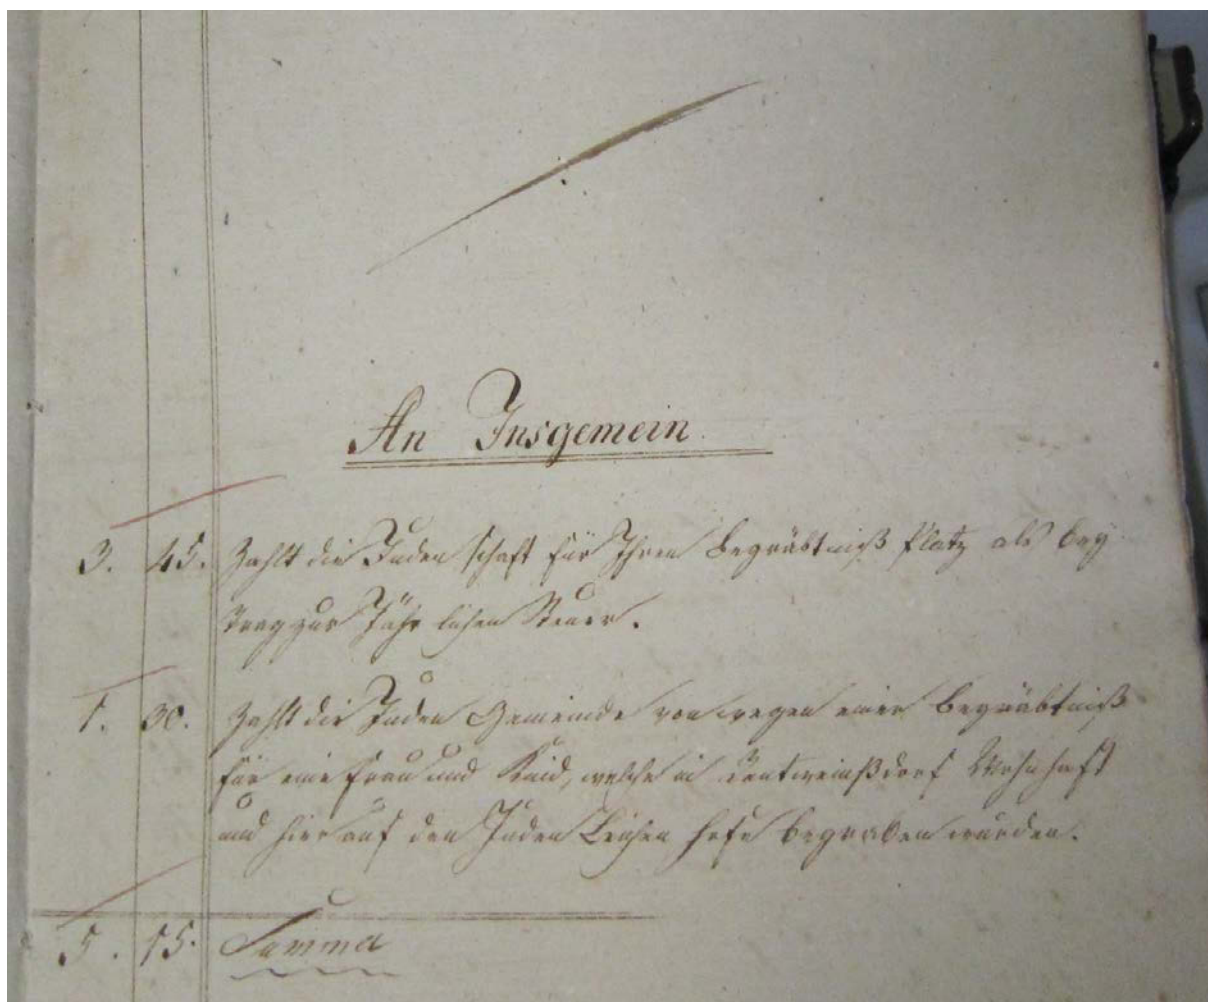 An Insgemein
3. 45. Zahlt die Juden schaft für Ihren Begräbtniß Platz als bey
trag zur Jähr lichen Steuer.
1. 30. Zahlt die Juden Gemeinde von wegen einer Begräbtniß
für eine Frau und Kind, welche in Rentweinßdorf Wohnhaft
und hier auf den Juden Leichen hofe begraben wurden.
5. 15. Summa